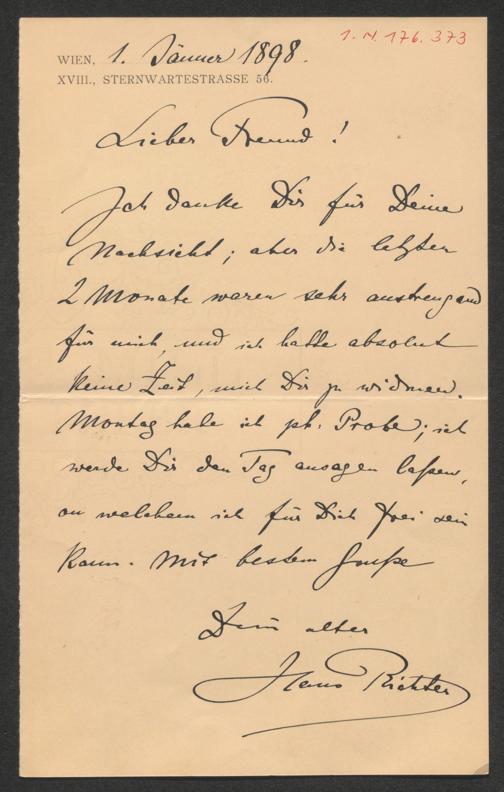 1. N. 176.373
WIEN, 1. Jänner 1898.
XVIII., STERNWARTESTRASSE 56.
Lieber Freund!
Ich danke Dir für Deine
Nachsicht; aber die letzten
2 Monate waren sehr anstrengend
für mich, und ich hatte absolut
keine Zeit, mich Dir zu widmen.
Montag habe ich ph. Probe; ich
werde Dir den Tag ansagen laßen,
an welchem ich für Dich frei sein
kann. Mit bestem Gruße
Dein alter
Hans Richter